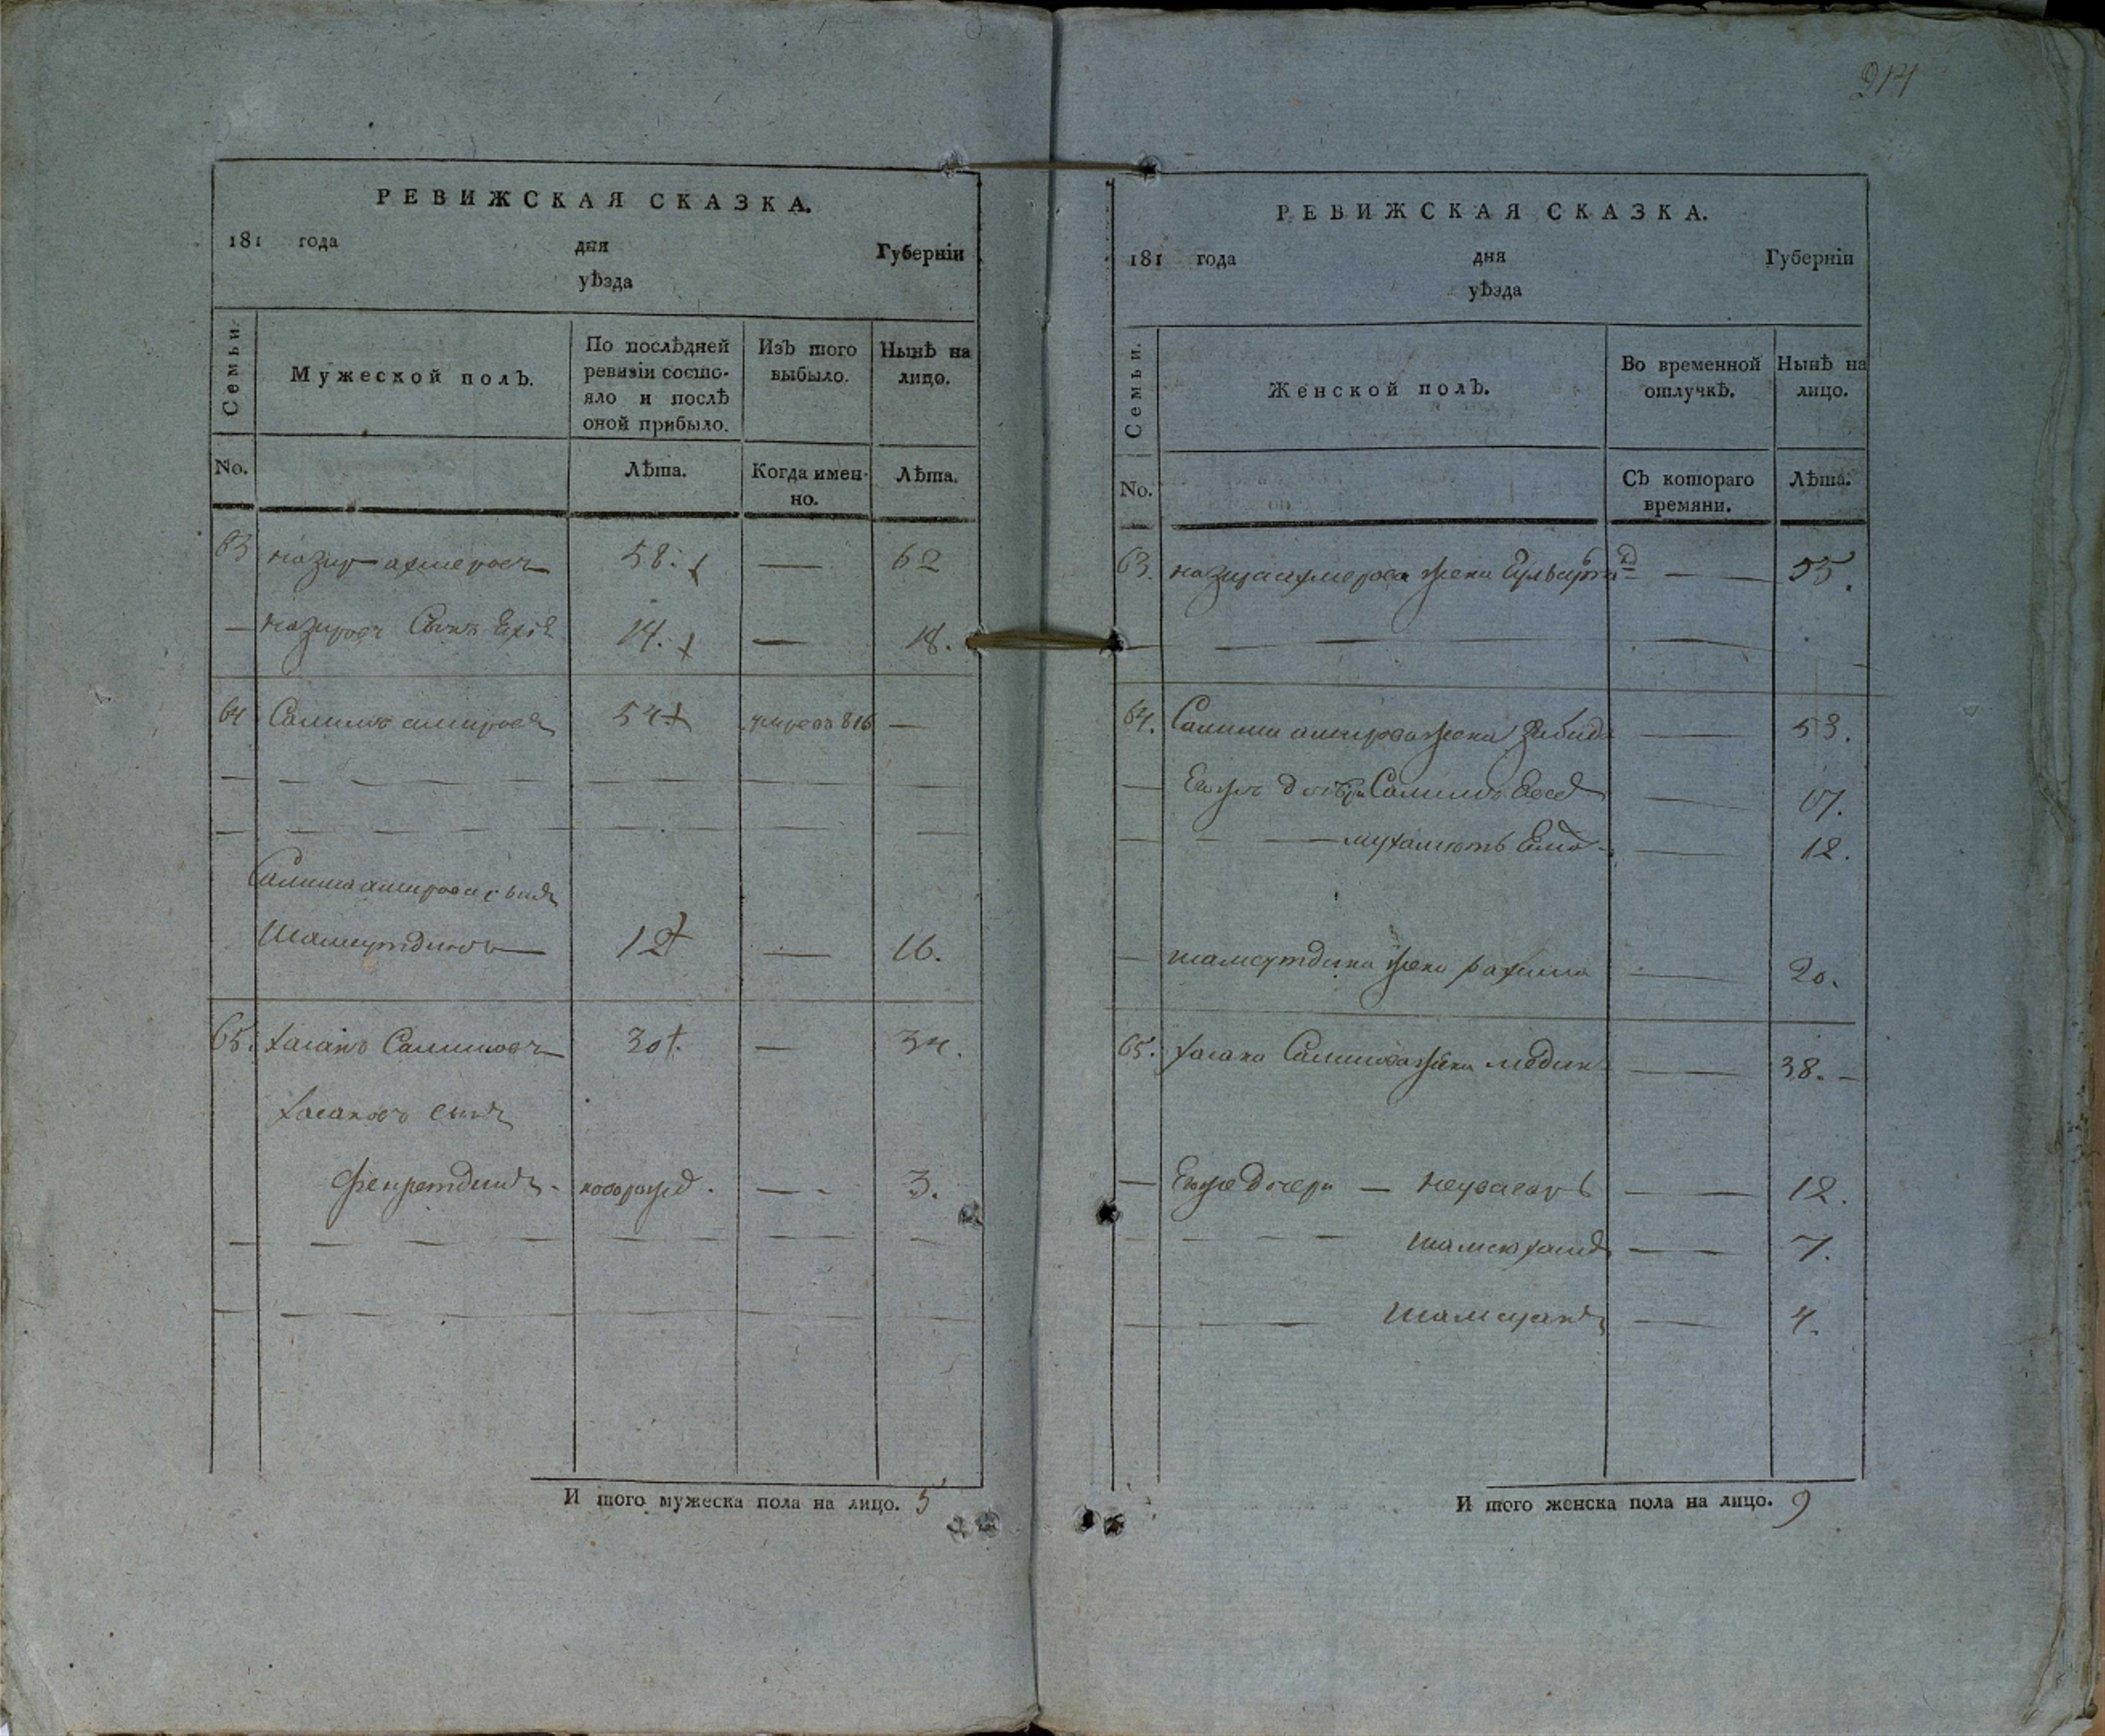 РЕВИЖСКАЯ СКАЗКА.
181 года дня Губерніи
уѣзда
Семьи.
Мужеской полъ.
По послѣдней ревизіи состояло и послѣ оной прибыло.
Изъ того выбыло.
Нынѣ на лицо.
No.
Лѣта.
Когда именно.
Лѣта.
63 назир ахмеровъ 58. — 62
— назировъ Сынъ 14. — 18.
64 Салимъ амировъ 54 умре въ 816 —
Салима амирова сынъ
Шамсутдинъ — 12 — 16.
65. хасанъ Салимовъ 30 — 34.
хасановъ сынъ
Фекретдинъ новорожд. — 3.
И того мужеска пола на лицо. 5
914
РЕВИЖСКАЯ СКАЗКА.
181 года дня Губерніи
уѣзда
Семьи.
Женской полъ.
Во временной отлучкѣ.
Нынѣ на лицо.
No.
Съ котораго времяни.
Лѣта.
63. назира ахмерова жена — 55.
64. Салима амирова жена Забида — 53.
Салимовъ — 17.
— 12.
— шамсутдина жена рахима — 20.
65. хасана Салимова жена — 38. —
— Ево же дочери — — 12.
— 7.
— 4.
И того женска пола на лицо. 9